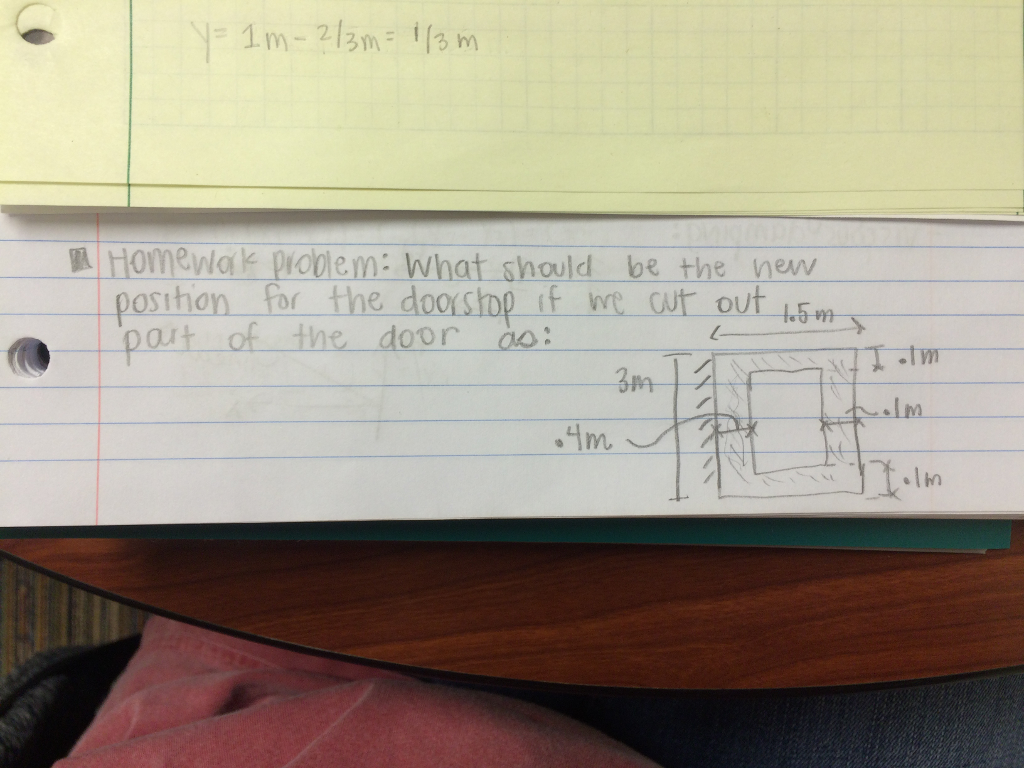 y = 1m - 2/3m = 1/3 m
Homework problem: What should be the new
position for the doorstop if we cut out
part of the door as:
1.5m
.1m
3m
.1m
.4m
.1m